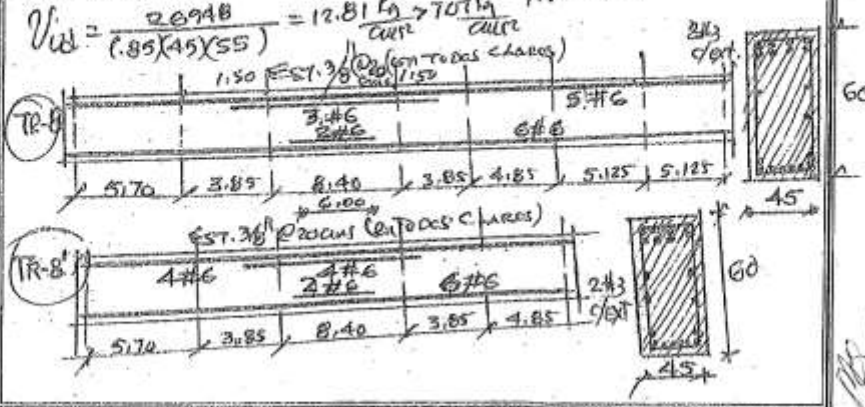 Vud = 26948 / (.85)(45)(55) = 12.81 kg/cm² > 7.07 kg/cm²
1.50 EST. 3/8" @ 20 (EN TODOS CLAROS) 1.50
2#3 c/ext.
TR-8
3#6
2#6
5#6
6#6
60
5.70 3.85 8.40 3.85 4.85 5.125 5.125
6.00
45
EST. 3/8" @ 20cms (EN TODOS CLAROS)
TR-8'
4#6
4#6
2#6
6#6
2#3 c/ext
60
5.70 3.85 8.40 3.85 4.85
45